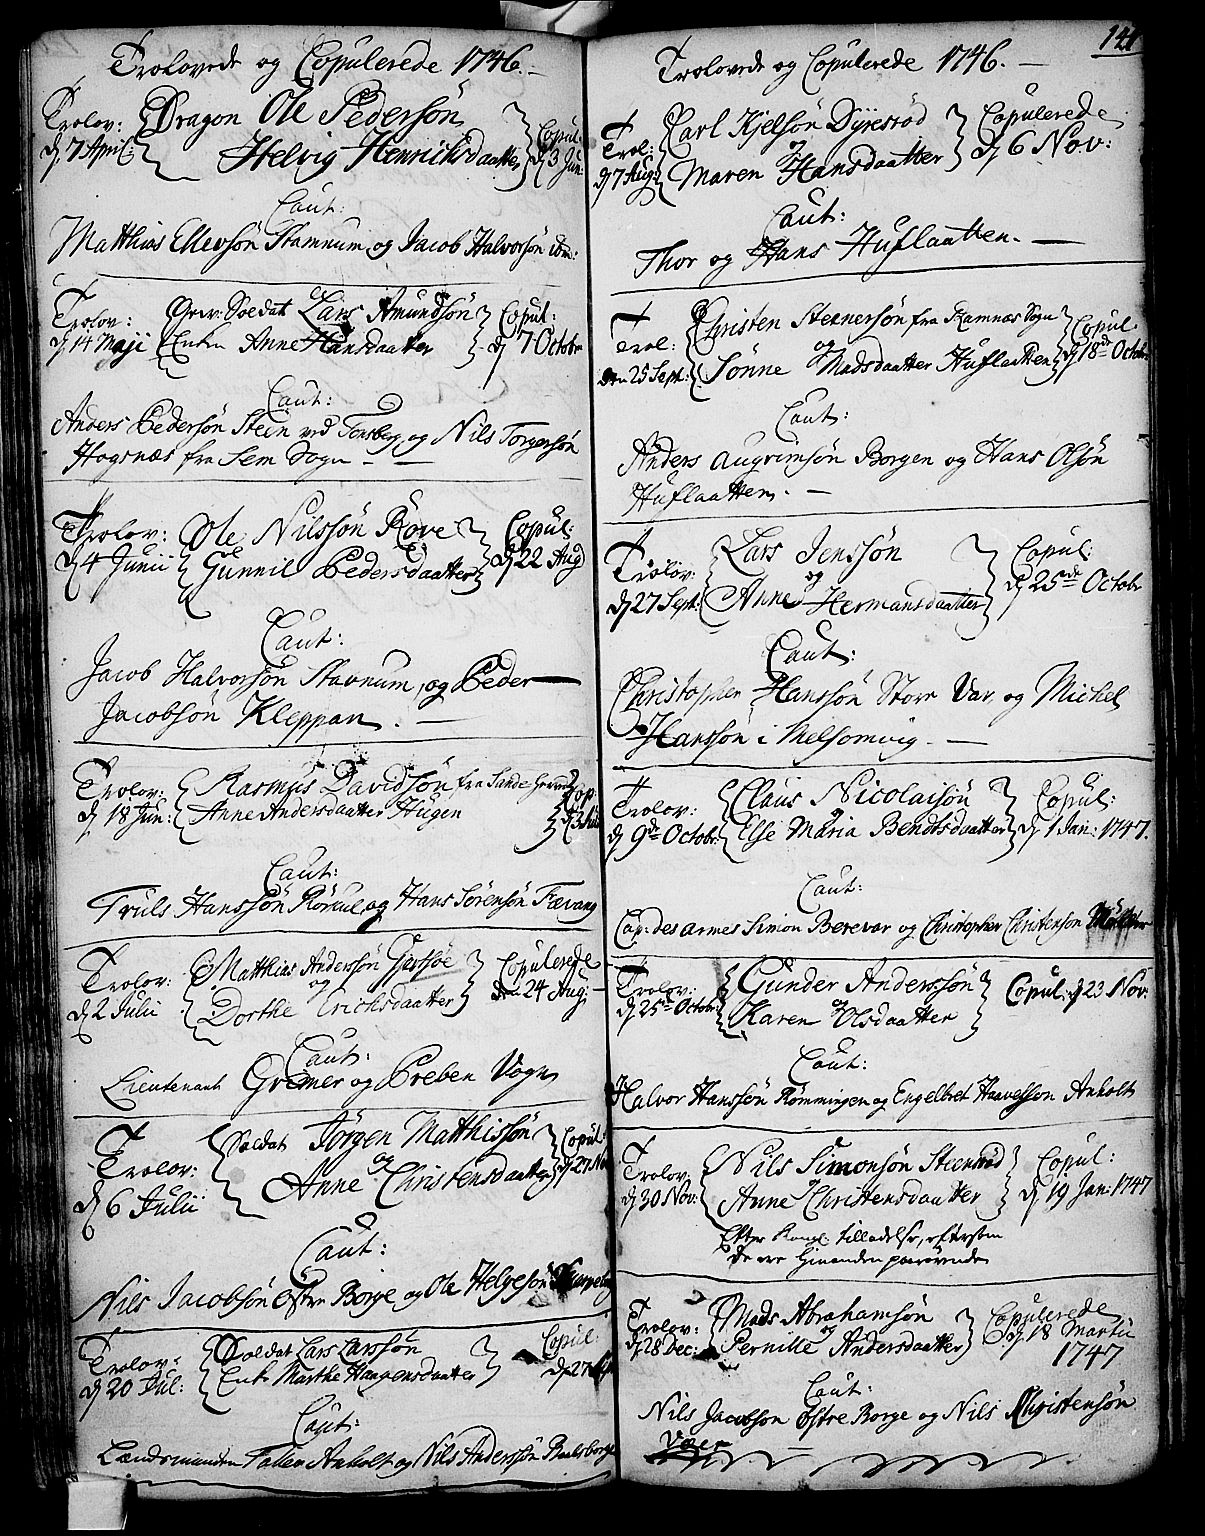 Trolovede og Copulerede 1746. —
Trolov: Dragon Ole Pedersøn Copul:
d 7 April: Helvig Henrichsdaatter d 3 Jun:
Caut:
Matthias Ellevsøn Stamnum og Jacob Halvorsøn ibm:
Trolov: Gew: Soldat Lars Amundsøn Copul:
d 14 Maji Enken Anne Hansdaatter d 7 Octobr
Caut:
Anders Pedersøn Steen ved Tonsberg, og Nils Torgersøn
Hogsnæs fra Sem Sogn — —
Trolov: Ole Nilssøn Rove Copul:
d 4 Junii Gunnil Pedersdaatter d 22 Aug
Caut:
Jacob Halvorsøn Stavnum, og Peder
Jacobsøn Kleppan. —
Trolov: Rasmus Davidsøn fra Sande Cop:
d 18 Jun: Anne Andersdaatter Haugen
Caut:
Truls Hanssøn Rørkul, og Hans Sørensøn Fævang
Trolov: Matthias Andersøn Copulerede
og
d 2 Julii Dorthe Erichsdaatter den 24 Aug:
Caut:
Lieutenant Gremer og Preben Vogn
Trolov: Soldat Jørgen Matthissøn Copul:
og
d 6 Julii Anne Christensdaatter d 27 Nov
Caut:
Nils Jacobsøn Østre Borge og Ole Helgesøn
Trolov: Soldat Lars Larssøn Copul:
d 20 Jul: Enke Marthe Haagensdaatter d 27
Caut:
Lændsmanden Anholt og Nils Anderssøn
141
Trolovede og Copulerede 1746. —
Trol: Carl Kjelsøn Dyresrød Copulerede
og
d 7 Aug: Maren Hansdaatter d 6 Nov:
Caut:
Thor og Hans Huflaatten. —
Trol: Christen Stennersøn fra Ramnæs Sogn Copul:
og
den 25 Sept: Sønne Madsdaatter Huflaatten d 18de Octobr
Caut:
Anders Augrimsøn Borgen og Hans Olsøn
Huflaatten. —
Trolov: Lars Jenssøn Copul:
og
d 27 Sept: Anne Hermansdaatter d 25de Octobr
Caut:
Christopher Hanssøn Store Var, og Michel
Hanssøn i Melsomvig. —
Trolov: Claus Nicolaisøn Copul:
d 9de Octobr: Else Maria Bendtsdaatter d 1 Jan: 1747.
Caut:
Cap: des armes Simon Berevar og Christopher Christensøn
Trolov: Gunder Anderssøn Copul: d 23 Nov:
og
d 25de Octobr: Karen Olsdaatter
Caut:
Halvor Hanssøn Rømmingen og Engelbret Haavelssøn Anholt
Trolov: Nils Simonsøn Steensrød Copul:
d 30 Nov: Anne Christensdaatter d 19 Jan: 1747
Efter Kongl: tilladelse, eftersom
de ere hinanden paarørende
Trolov: Mads Abrahamsøn Copulerede
og
d 28 Dec: Pernille Andersdaatter d 18 Martii
1747
Caut:
Nils Jacobsøn Østre Borge og Nils Christensøn
Væer